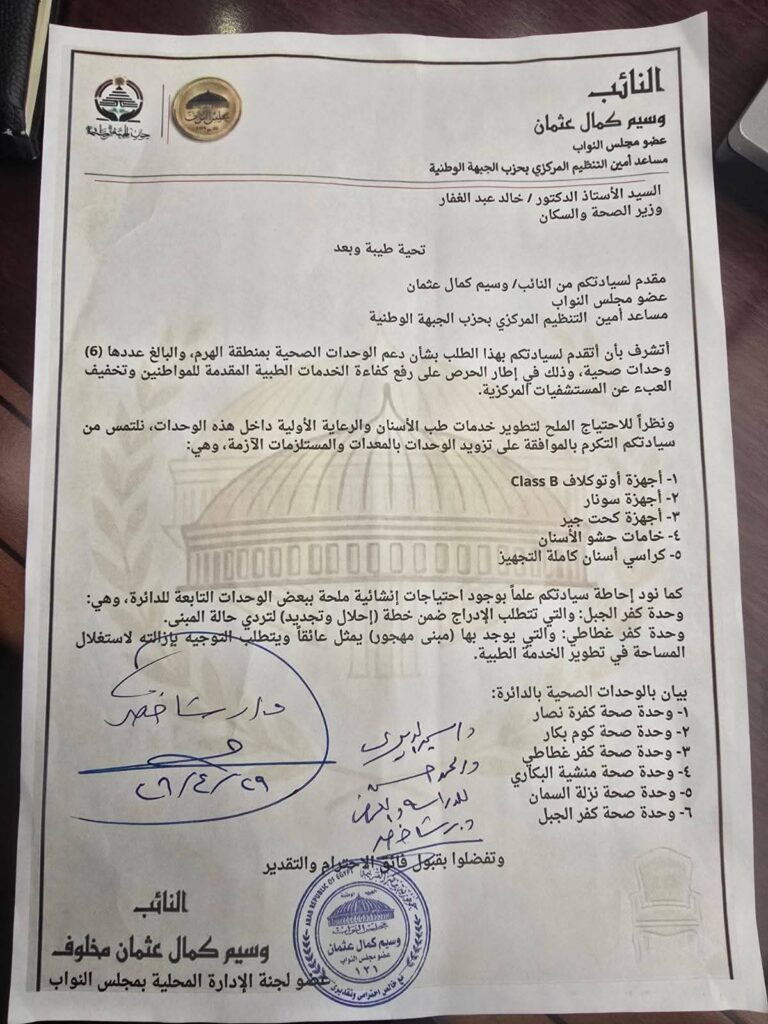 النائب
وسيم كمال عثمان
عضو مجلس النواب
مساعد أمين التنظيم المركزي بحزب الجبهة الوطنية
مجلس النواب
حزب الجبهة الوطنية
السيد الأستاذ الدكتور / خالد عبد الغفار
وزير الصحة والسكان
تحية طيبة وبعد
مقدم لسيادتكم من النائب/ وسيم كمال عثمان
عضو مجلس النواب
مساعد أمين التنظيم المركزي بحزب الجبهة الوطنية
أتشرف بأن أتقدم لسيادتكم بهذا الطلب بشأن دعم الوحدات الصحية بمنطقة الهرم، والبالغ عددها (6)
وحدات صحية، وذلك في إطار الحرص على رفع كفاءة الخدمات الطبية المقدمة للمواطنين وتخفيف
العبء عن المستشفيات المركزية.
ونظراً للاحتياج الملح لتطوير خدمات طب الأسنان والرعاية الأولية داخل هذه الوحدات، نلتمس من
سيادتكم التكرم بالموافقة على تزويد الوحدات بالمعدات والمستلزمات الآزمة، وهي:
١- أجهزة أوتوكلاف Class B
٢- أجهزة سونار
٣- أجهزة كحت جير
٤- خامات حشو الأسنان
٥- كراسي أسنان كاملة التجهيز
كما نود إحاطة سيادتكم علماً بوجود احتياجات إنشائية ملحة ببعض الوحدات التابعة للدائرة، وهي:
وحدة كفر الجبل: والتي تتطلب الإدراج ضمن خطة (إحلال وتجديد) لتردي حالة المبنى.
وحدة كفر غطاطي: والتي يوجد بها (مبنى مهجور) يمثل عائقاً ويتطلب التوجيه بإزالته لاستغلال
المساحة في تطوير الخدمة الطبية.
بيان بالوحدات الصحية بالدائرة:
١- وحدة صحة كفرة نصار
٢- وحدة صحة كوم بكار
٣- وحدة صحة كفر غطاطي
٤- وحدة صحة منشية البكاري
٥- وحدة صحة نزلة السمان
٦- وحدة صحة كفر الجبل
د. رشا خضر
٢٦/٤/٢٩
د. احمد حسن
للدراسة والعرض
د. رشا خضر
وتفضلوا بقبول فائق الاحترام والتقدير
النائب
وسيم كمال عثمان مخلوف
عضو لجنة الإدارة المحلية بمجلس النواب
ARAB REPUBLIC OF EGYPT
جمهورية مصر العربية
مجلس النواب
وسيم كمال عثمان
عضو مجلس النواب
١٢١
مع خالص احترامي وتقديري